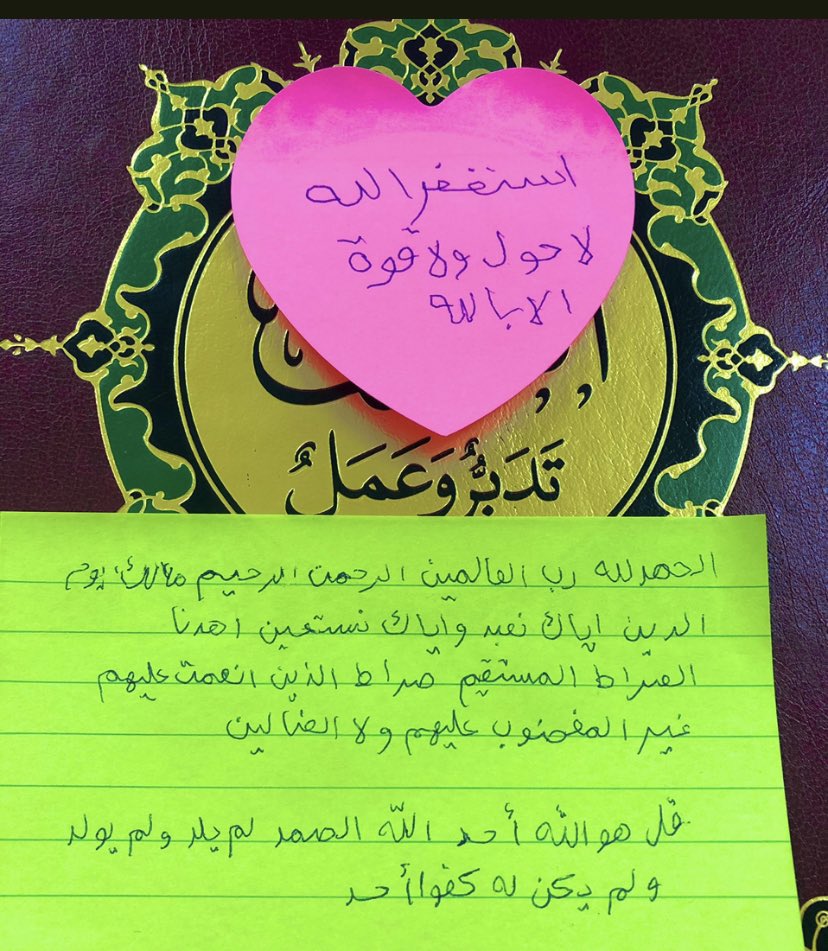 استغفر الله
لا حول ولا قوة
الا بالله
تَدَبُّرٌ وَعَمَلٌ
الحمد لله رب العالمين الرحمن الرحيم مالك يوم
الدين اياك نعبد واياك نستعين اهدنا
الصراط المستقيم صراط الذين انعمت عليهم
غير المغضوب عليهم ولا الضالين
قل هو الله أحد الله الصمد لم يلد ولم يولد
ولم يكن له كفوا أحد